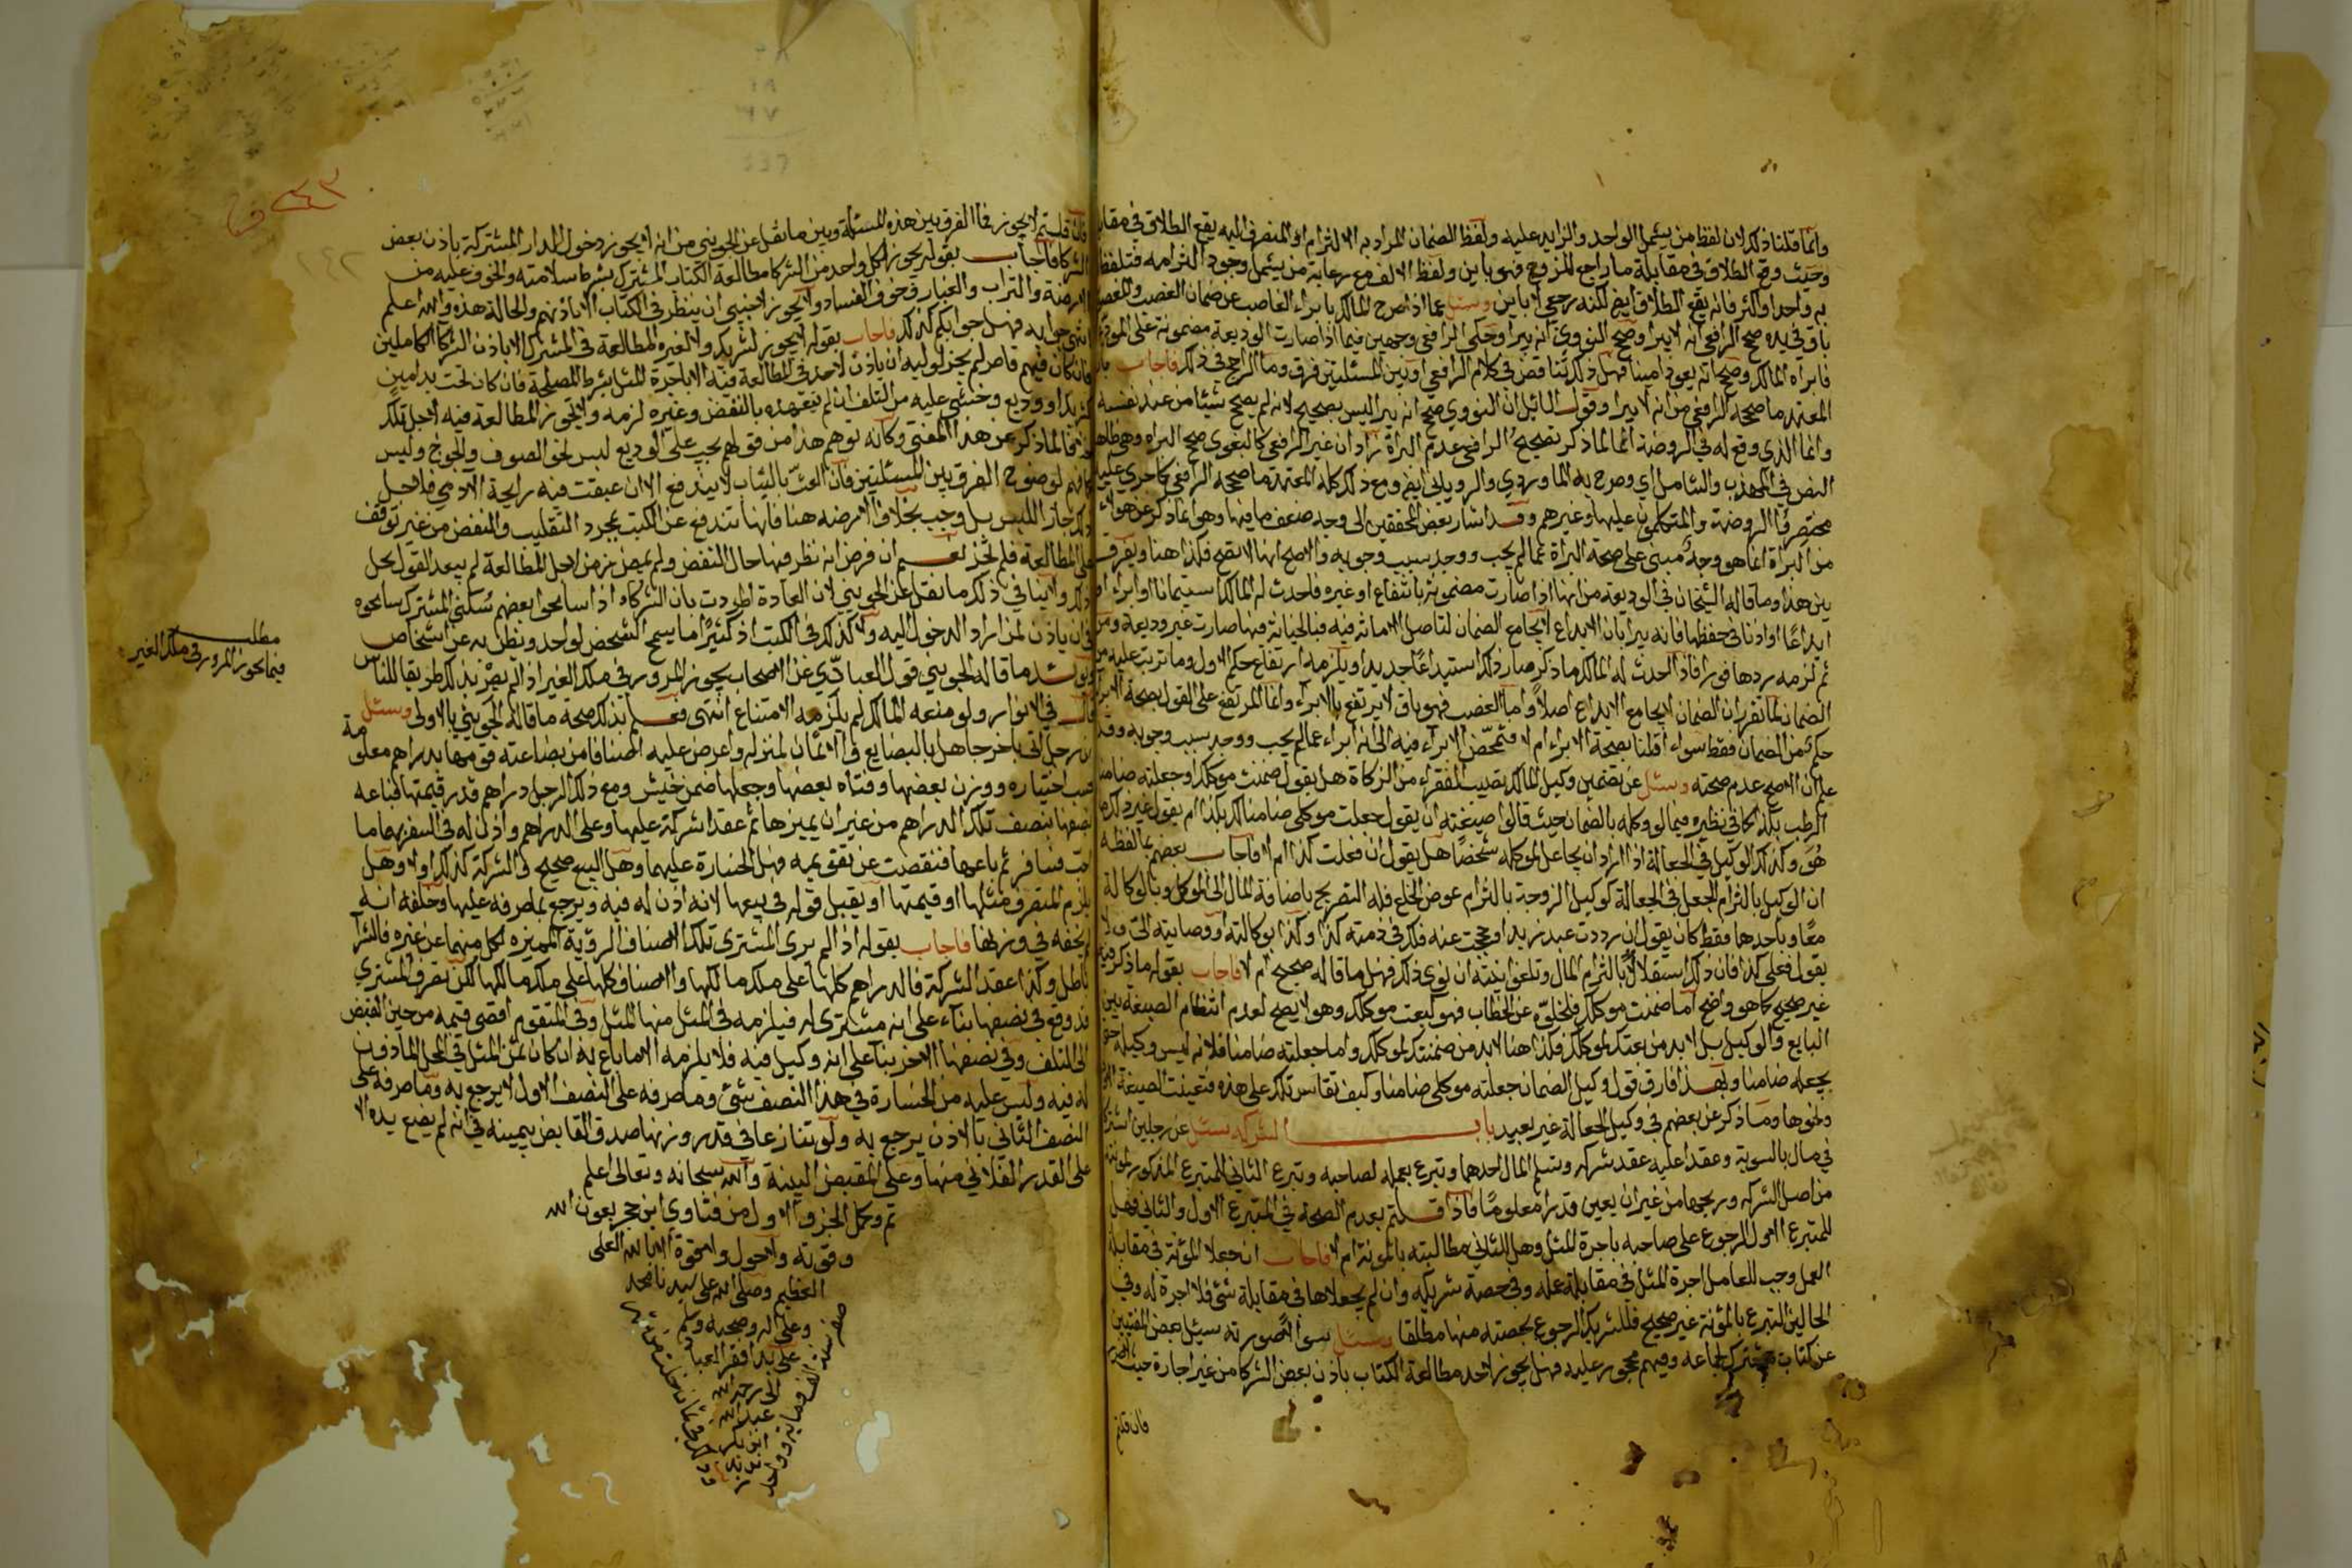 وانما قلنا ذلك لان لفظ من يشمل الواحد والزايد عليه ولفظ الضمان المراد به الالتزام او المنصرف اليه يقع الطلاق في مقابلة
وحيث وقع الطلاق في مقابلة ما راجع للزوج فهو باين ولفظ الالف مع رعاية من يشمل وجود التزامه فتلفظ
به واحدا واكثر فانه يقع الطلاق ايضا لكنه رجعي لا باين وسئل عما اذا صرح المالك بابراء الغاصب عن ضمان الغصب والمغصوب
باق في يده صحح الرافعي انه لا يبرا وصحح النووي انه يبرا وحكى الرافعي وجهين فيما اذا صارت الوديعة مضمونة على المودع
فابراه المالك وصححا انه يعود امينا فهل ذلك تناقض في كلام الرافعي او بين المسئلتين فرق وما الراجح في ذلك فاجاب بان
المعتمد ما صححه الرافعي من انه لا يبرا وقول القائل ان النووي صحح انه يبرا ليس بصحيح لانه لم يصحح شيئا من عند نفسه
وانما الذي وقع له في الروضة انما لما ذكر تصحيح الرافعي عدم البراة زاد ان غير الرافعي كالبغوي صحح البراه وهو ظاهر
النص في المهذب والشامل اي وصرح به الماوردي والروياني ايضا ومع ذلك كله المعتمد ما صححه الرافعي كما جرى عليه
مختصروا الروضة والمتكلمون عليها وغيرهم وقد اشار بعض المحققين الى وجه ضعف ما فيها وهو انما ذكر عن هولاء
من البراة انما هو وجه مبني على صحة البراة عما لم يجب ووجد سبب وجوبه والاصح انها لا تصح فكذا هنا ويفرق
بين هذا وما قاله الشيخان في الوديعة من انها اذا صارت مضمونة بانتفاع او غيره فاحدث له المالك استيمانا او ابراء او
ايداعا او اذنا في حفظها فانه يبرا بان الايداع لا يجامع الضمان لتاصل الامانة فيه فبالخيانة فيها صارت غير وديعة ومن
ثم لزمه ردها فورا فاذا احدث له المالك ما ذكر صار ذلك استيداعا جديدا ويلزمه ارتفاع حكم الاول وما ترتب عليه من
الضمان لما تقرر ان الضمان لا يجامع الايداع اصلا واما الغصب فهو باق لا يرتفع بالابراء وانما المرتفع على القول بصحة الابراء
حكمه من الضمان فقط سواء اقلنا بصحة الابراء ام لا فتمحض الابراء فيه الى انه ابراء عما لم يجب ووجد سبب وجوبه وقد
علم ان الاصح عدم صحته وسئل عن تضمين وكيل المالك نصيب الفقراء من الزكاة هل يقول ضمنت موكلك او جعلته ضامنا
الرطب بكذا كما في نظيره فيما لو وكله بالضمان حيث قالوا صيغته ان يقول جعلت موكلي ضامنا لك بكذا ام يقول غير ذلك
هو وكذلك الوكيل في الجعالة اذا اراد ان يجاعل لموكله شخصا هل يقول ان فعلت كذا ام لا فاجاب بعضهم بما لفظه
ان الوكيل بالتزام الجعل في الجعالة كوكيل الزوجة بالتزام عوض الخلع فله التصريح باضافة المال الى الموكل وبالوكالة
معا وباحدهما فقط كان يقول ان رددت عبد زيد او حججت عنه فلك في ذمته كذا وكذا بوكالته او وصايته الي ولا
يقول فعلي كذا فان ذلك استقلالا بالتزام المال وتلغوا نيته ان نوى ذلك فهل ما قاله صحيح ام لا فاجاب بقوله ما ذكر فيه
غير صحيح كما هو واضح اما ضمنت موكلك فلخلوه عن الخطاب فهو كبعت موكلك وهو لا يصح لعدم انتظام الصيغة بين
البايع والوكيل بل لا بد من بعتك لموكلك فكذا هنا لا بد من ضمنتك لموكلك واما جعلته ضامنا فلانه ليس وكيله حتى
يجعله ضامنا وبهذا فارق قول وكيل الضمان جعلته موكلي ضامنا وكيف تقاس تلك على هذه فتعينت الصيغة
ونحوها وما ذكر عن بعضهم في وكيل الجعالة غير بعيد باب الشركه سئل عن رجلين اشتركا
في مال بالسوية وعقدا عليه عقد شركه وتسلم المال احدهما وتبرع بعمله لصاحبه وتبرع الثاني للمتبرع المذكور بمؤنته
من اصل الشركه وربحها من غير ان يعين قدرا معلوما فاذا قلتم بعدم الصحة في المتبرع الاول والثاني فهل
للمتبرع الاول الرجوع على صاحبه باجرة المثل وهل للثاني مطالبته بالمونة ام لا فاجاب ان جعلا المؤنة في مقابلة
العمل وجب للعامل اجرة المثل في مقابلة عمله وفي حصة شريكه وان لم يجعلاها في مقابلة شئ فلا اجرة له وفي
الحالين التبرع بالمؤنة غير صحيح فللشريك الرجوع بحصته منها مطلقا وسئل سؤالا صورته سئل بعض المفتيين
عن كتاب مشترك لجماعه وفيهم محجور عليه فهل يجوز لاحد مطالعة الكتاب باذن بعض الشركا من غير اجارة حيث
فان قلتم
٢٤٣
فان قلتم لا يجوز فما الفرق بين هذه المسئلة وبين ما نقل عن الجويني من انه يجوز دخول الدار المشتركة باذن بعض
الشركا فاجاب بقوله يجوز لكل واحد من الشركا مطالعة الكتاب المشترك بشرط سلامته والخوف عليه من
الارضة والتراب والغبار وخوف الفساد ولا يجوز لاجنبي ان ينظر في الكتاب الا باذنهم والحالة هذه والله اعلم
انتهى جوابه فهل جوابكم كذلك فاجاب بقوله لا يجوز لشريك ولا لغيره المطالعة في المشترك الا باذن الشركا الكاملين
فان كان فيهم قاصر لم يجز لوليه ان ياذن لاحد في المطالعة فيه الا باجرة المثل بشرط المصلحة فان كان تحت يد امين
كشريك او وديع وخشي عليه من التلف ان لم يتعهده بالنفض وغيره لزمه ولا يجوز المطالعة فيه لاجل تلك
خلافا لما ذكر عن هذا المفتي وكانه توهم هذا من قولهم يجب على الوديع لبس نحو الصوف والجوخ وليس
كما توهم لوضوح الفرق بين المسئلتين فان العث بالثياب لا يندفع الا ان عبقت فيه رايحة الآدمي فلاجل
ذلك جاز اللبس بل وجب بخلاف الارضه هنا فانها تندفع عن الكتب بمجرد التقليب والنفض من غير توقف
على المطالعة فلم تجز نعم ان فرض انه نظر فيها حال النفض ولم يمض زمن لاجل المطالعة لم يبعد القول بحل
ذلك ولا ينافي ذلك ما نقل عن الجويني لان العادة اطردت بان الشركاء اذا سامحوا بعضهم بسكنى المشترك سامحوه
في ان ياذن لمن اراد الدخول اليه ولا كذلك في الكتب اذ كثيرا ما يسمح الشخص لواحد ويظن به عن اشخاص
ويؤيد ما قاله الجويني قول العبادي عن الاصحاب يجوز المرور في ملك الغير اذا لم يصر بذلك طريقا للناس
مطلب
فيما يجوز المرور في ملك الغير
قال في الانوار ولو منعه المالك لم يلزمه الامتناع انتهى فعلم بذلك صحة ما قاله الجويني بالاولى وسئل
عن رجل اتى باخر جاهل بالبضايع في الاثمان لمنزله واعرض عليه اصنافا من بضاعته قومها بدراهم معلومة
حسب اختياره ووزن بعضها وفتاه بعضها وجعلها ضمن خيش ومع ذلك الرجل دراهم قدر قيمتها فباعه
نصفها بنصف تلك الدراهم من غير ان يميزها ثم عقدا شركة عليها وعلى الدراهم واذن له في السفر بهما
فسافر ثم باعها فنقصت عن تقويمه فهل الخسارة عليهما وهل البيع صحيح والشركة كذلك او لا وهل
يلزم المتصرف مثلها او قيمتها او يقبل قوله في بيعها لانه اذن له فيه ويرجع بما صرفه عليها وحلفه انه
لم يخنه في وزنها فاجاب بقوله اذا لم يرى المشتري تلك الاصناف الرؤية المميزه لكل منهما عن غيره فالشرآ
باطل وكذا عقد الشركة فالدراهم كلها على ملك مالكها والاصناف كلها على ملك مالكها لكن تصرف المشتري
قد وقع في نصفها بناء على انه مشترى له فيلزمه في المثل منها المثل وفي المتقوم اقصى قيمه من حين القبض
الى التلف وفي نصفها الاخر بناء على انه وكيل فيه فلا يلزمه الا ما باع به ان كان ثمن المثل في المحل الماذون
له فيه وليس عليه من الخسارة في هذا النصف شئ وما صرفه على النصف الاول لا يرجع به وما صرفه على
النصف الثاني بالاذن يرجع به ولو تنازعا في قدر وزنها صدق القابض بيمينه في انه لم يضع يده الا
على القدر الفلاني منها وعلى المقبض البينة والله سبحانه وتعالى اعلم
تم وكمل الجزو الاول من فتاوي ابن حجر بعون الله
وقوته ولا حول ولا قوة الا بالله العلى
العظيم وصلى الله على سيدنا محمد
وعلى اله وصحبه وسلم
على يد افقر العباد
الى رحمة الله
عبد الله
ابن بكر